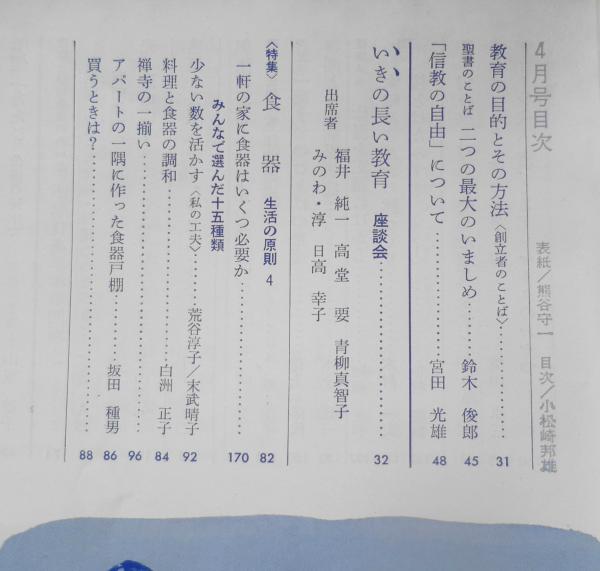 4月号目次
表紙/熊谷守一 目次/小松崎邦雄
教育の目的とその方法〈創立者のことば〉………… 31
聖書のことば 二つの最大のいましめ……鈴木 俊郎 45
「信教の自由」について…………宮田 光雄 48
いゝいきの長い教育 座談会………… 32
出席者 福井 純一 高堂 要 青柳真智子
みのわ・淳 日高 幸子
〈特集〉食 器 生活の原則 4 82
一軒の家に食器はいくつ必要か………… 170
みんなで選んだ十五種類
少ない数を活かす〈私の工夫〉……荒谷淳子/末武晴子 92
料理と食器の調和…………白洲 正子 84
禅寺の一揃い………… 96
アパートの一隅に作った食器戸棚……坂田 種男 86
買うときは?………… 88